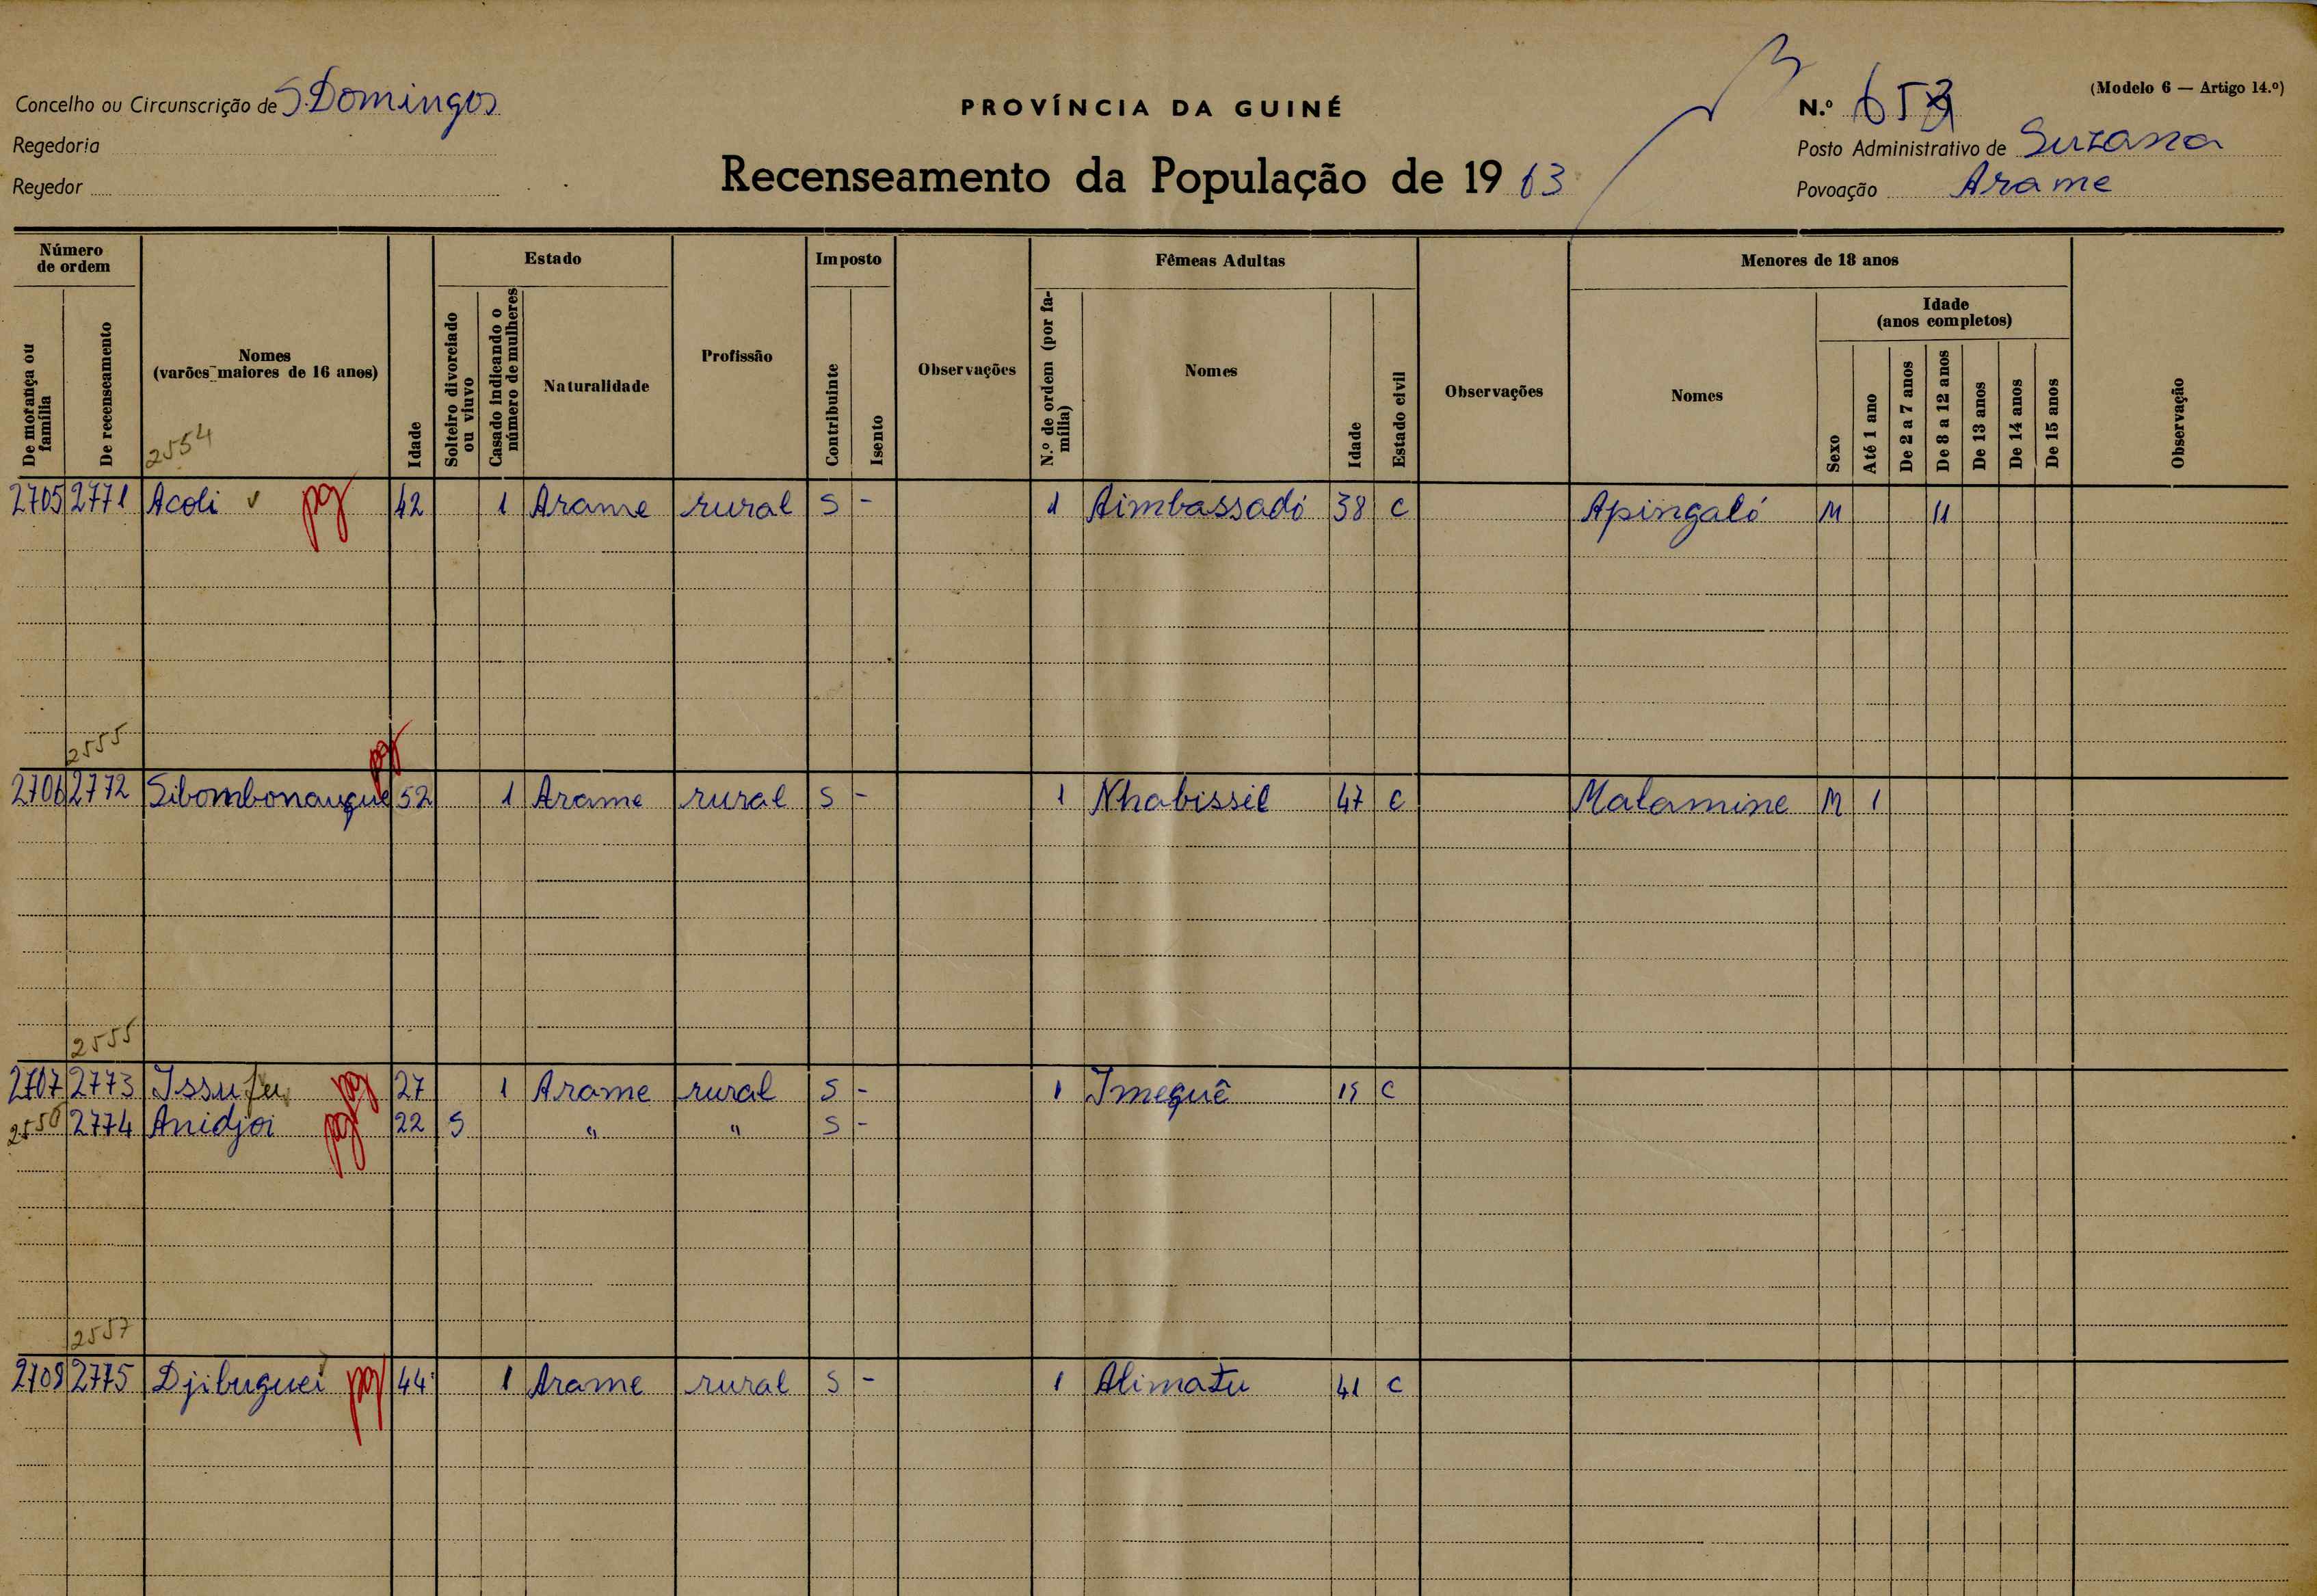 (Modelo 6 — Artigo 14.º)
Concelho ou Circunscrição de S. Domingos
PROVÍNCIA DA GUINÉ
N.º
Regedoria
Posto Administrativo de Suzana
Regedor
Recenseamento da População de 1963
Povoação Arame
Número de ordem
De morança ou família
De recenseamento
Nomes
(varões maiores de 16 anos)
Idade
Estado
Solteiro divorciado ou viuvo
Casado indicando o número de mulheres
Naturalidade
Profissão
Imposto
Contribuinte
Isento
Observações
Fêmeas Adultas
N.º de ordem (por família)
Nomes
Idade
Estado civil
Observações
Menores de 18 anos
Nomes
Sexo
Idade
(anos completos)
Até 1 ano
De 2 a 7 anos
De 8 a 12 anos
De 13 anos
De 14 anos
De 15 anos
Observação
2554
2705 2771 Acoli pg 42 1 Arame rural S - 1 Aimbassadó 38 C Apingaló M 11
2555 pg
2706 2772 Sibombonauque 52 1 Arame rural S - 1 Nhabissil 47 C Malamine M 1
2555
2707 2773 Issufu pg 27 1 Arame rural S - 1 Imequê C
2774 Anidjoi pg 22 S " " S -
2557
2708 2775 Djibuguei pg 44 1 Arame rural S - 1 Alimatu 41 C